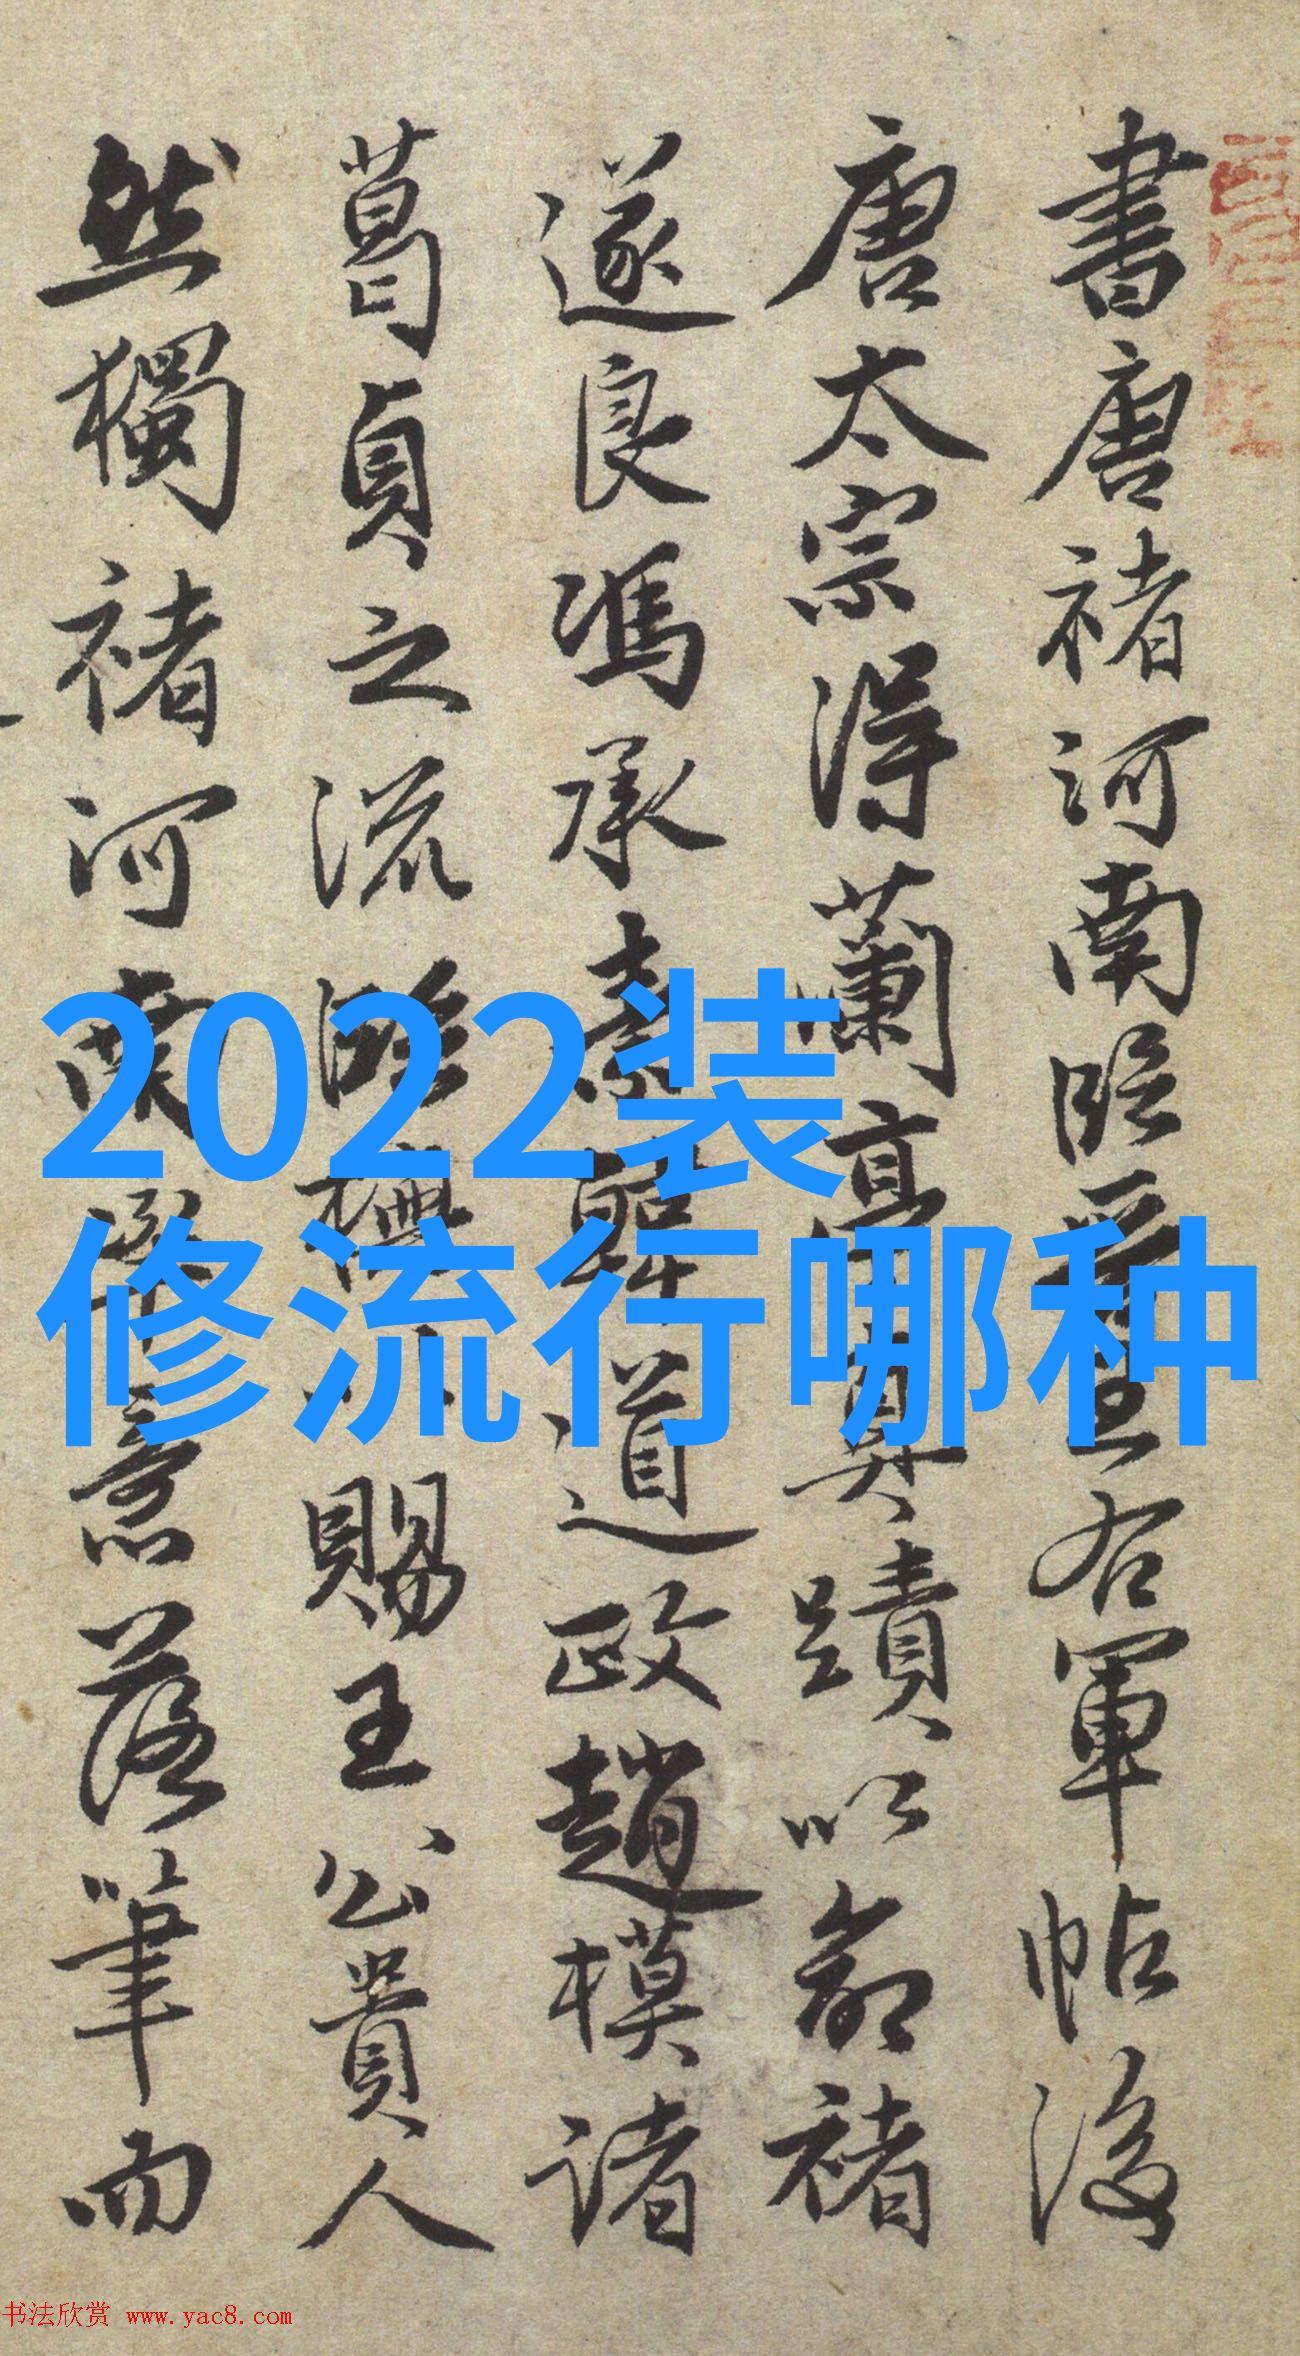 書唐褚河南臨王右軍帖後
唐太宗得蘭亭真蹟以命褚
遂良馮承素韓道政趙模諸
葛貞之流賜王公貴人
然獨褚河南意落筆而
2022装
修流行哪种
书法欣赏 www.yac8.com